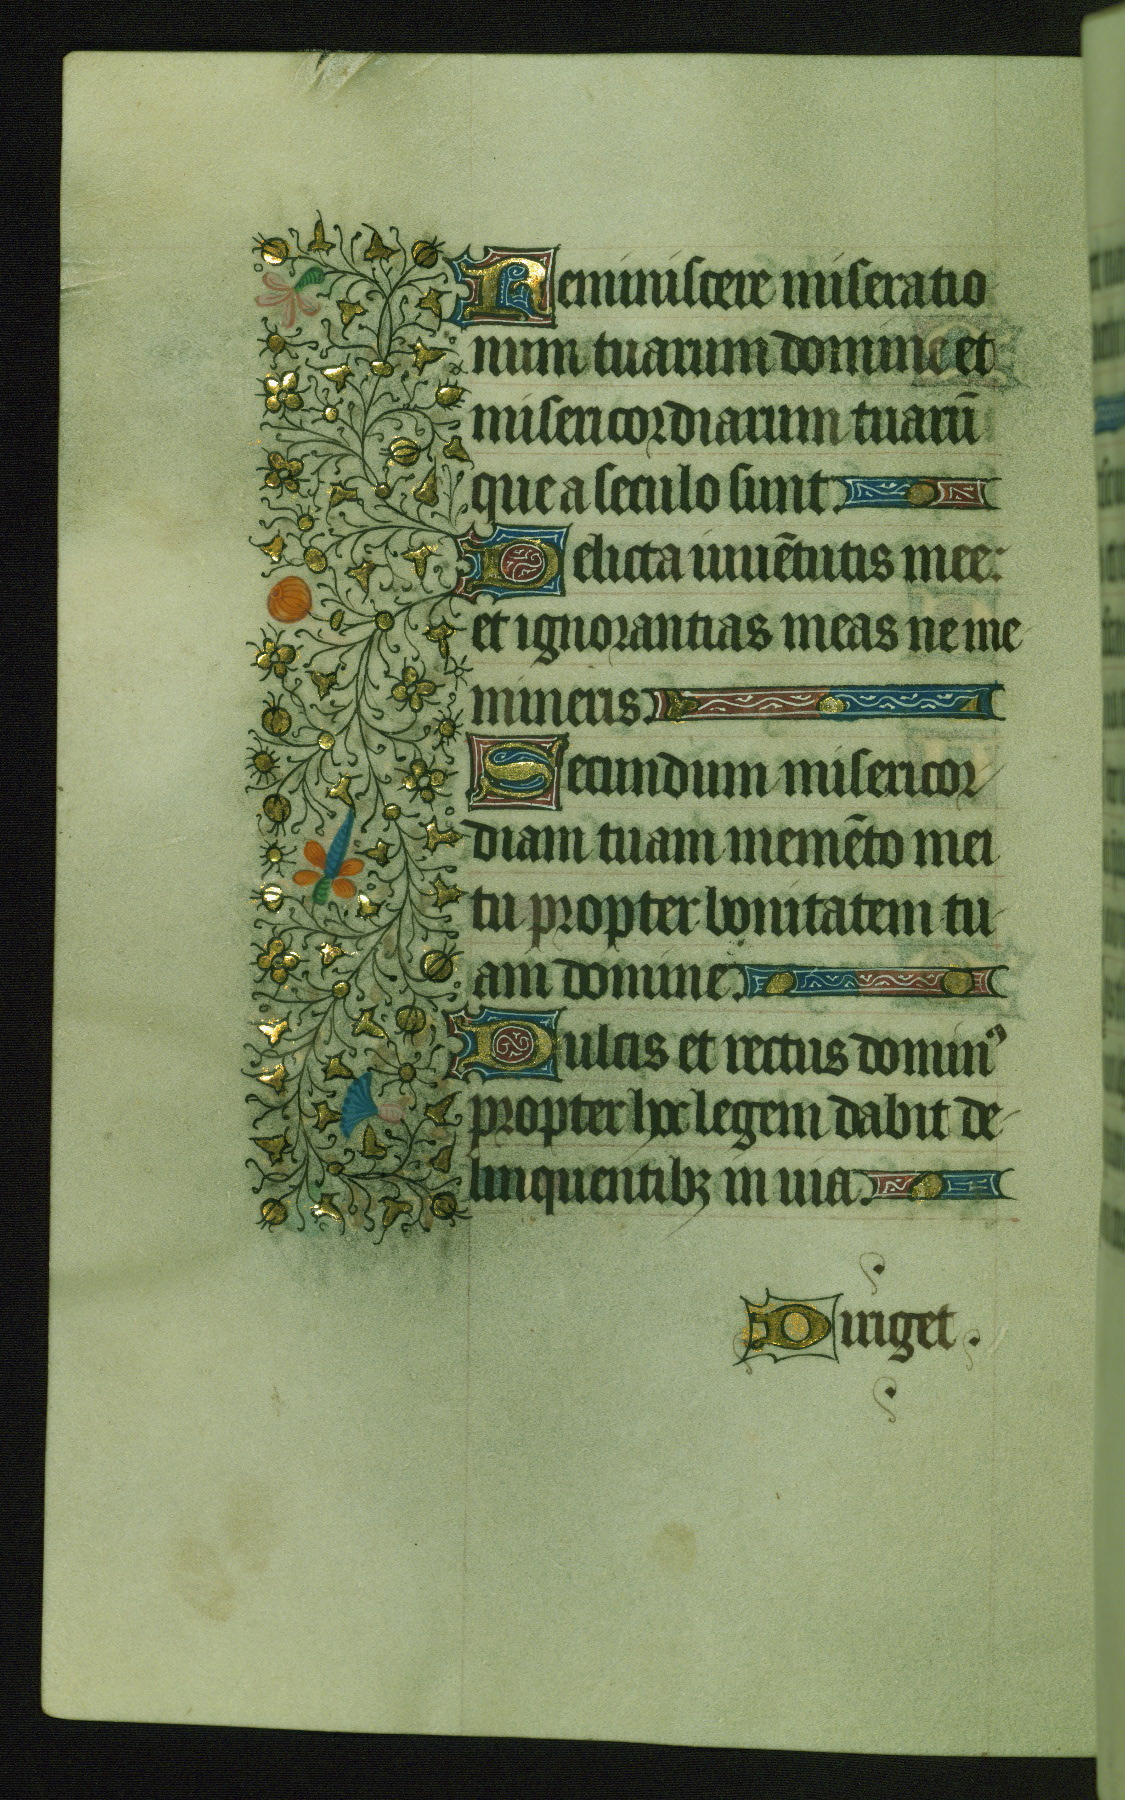 Reminiscere miseratio
num tuarum domine et
misericordiarum tuarū
que a seculo sunt.
Delicta iuuētutis mee:
et ignorantias meas ne me
mineris.
Secundum misericor
diam tuam memēto mei
tu propter bonitatem tu
am domine.
Dulcis et rectus dominꝰ
propter hoc legem dabit de
linquentibꝫ in uia.
Diriget.